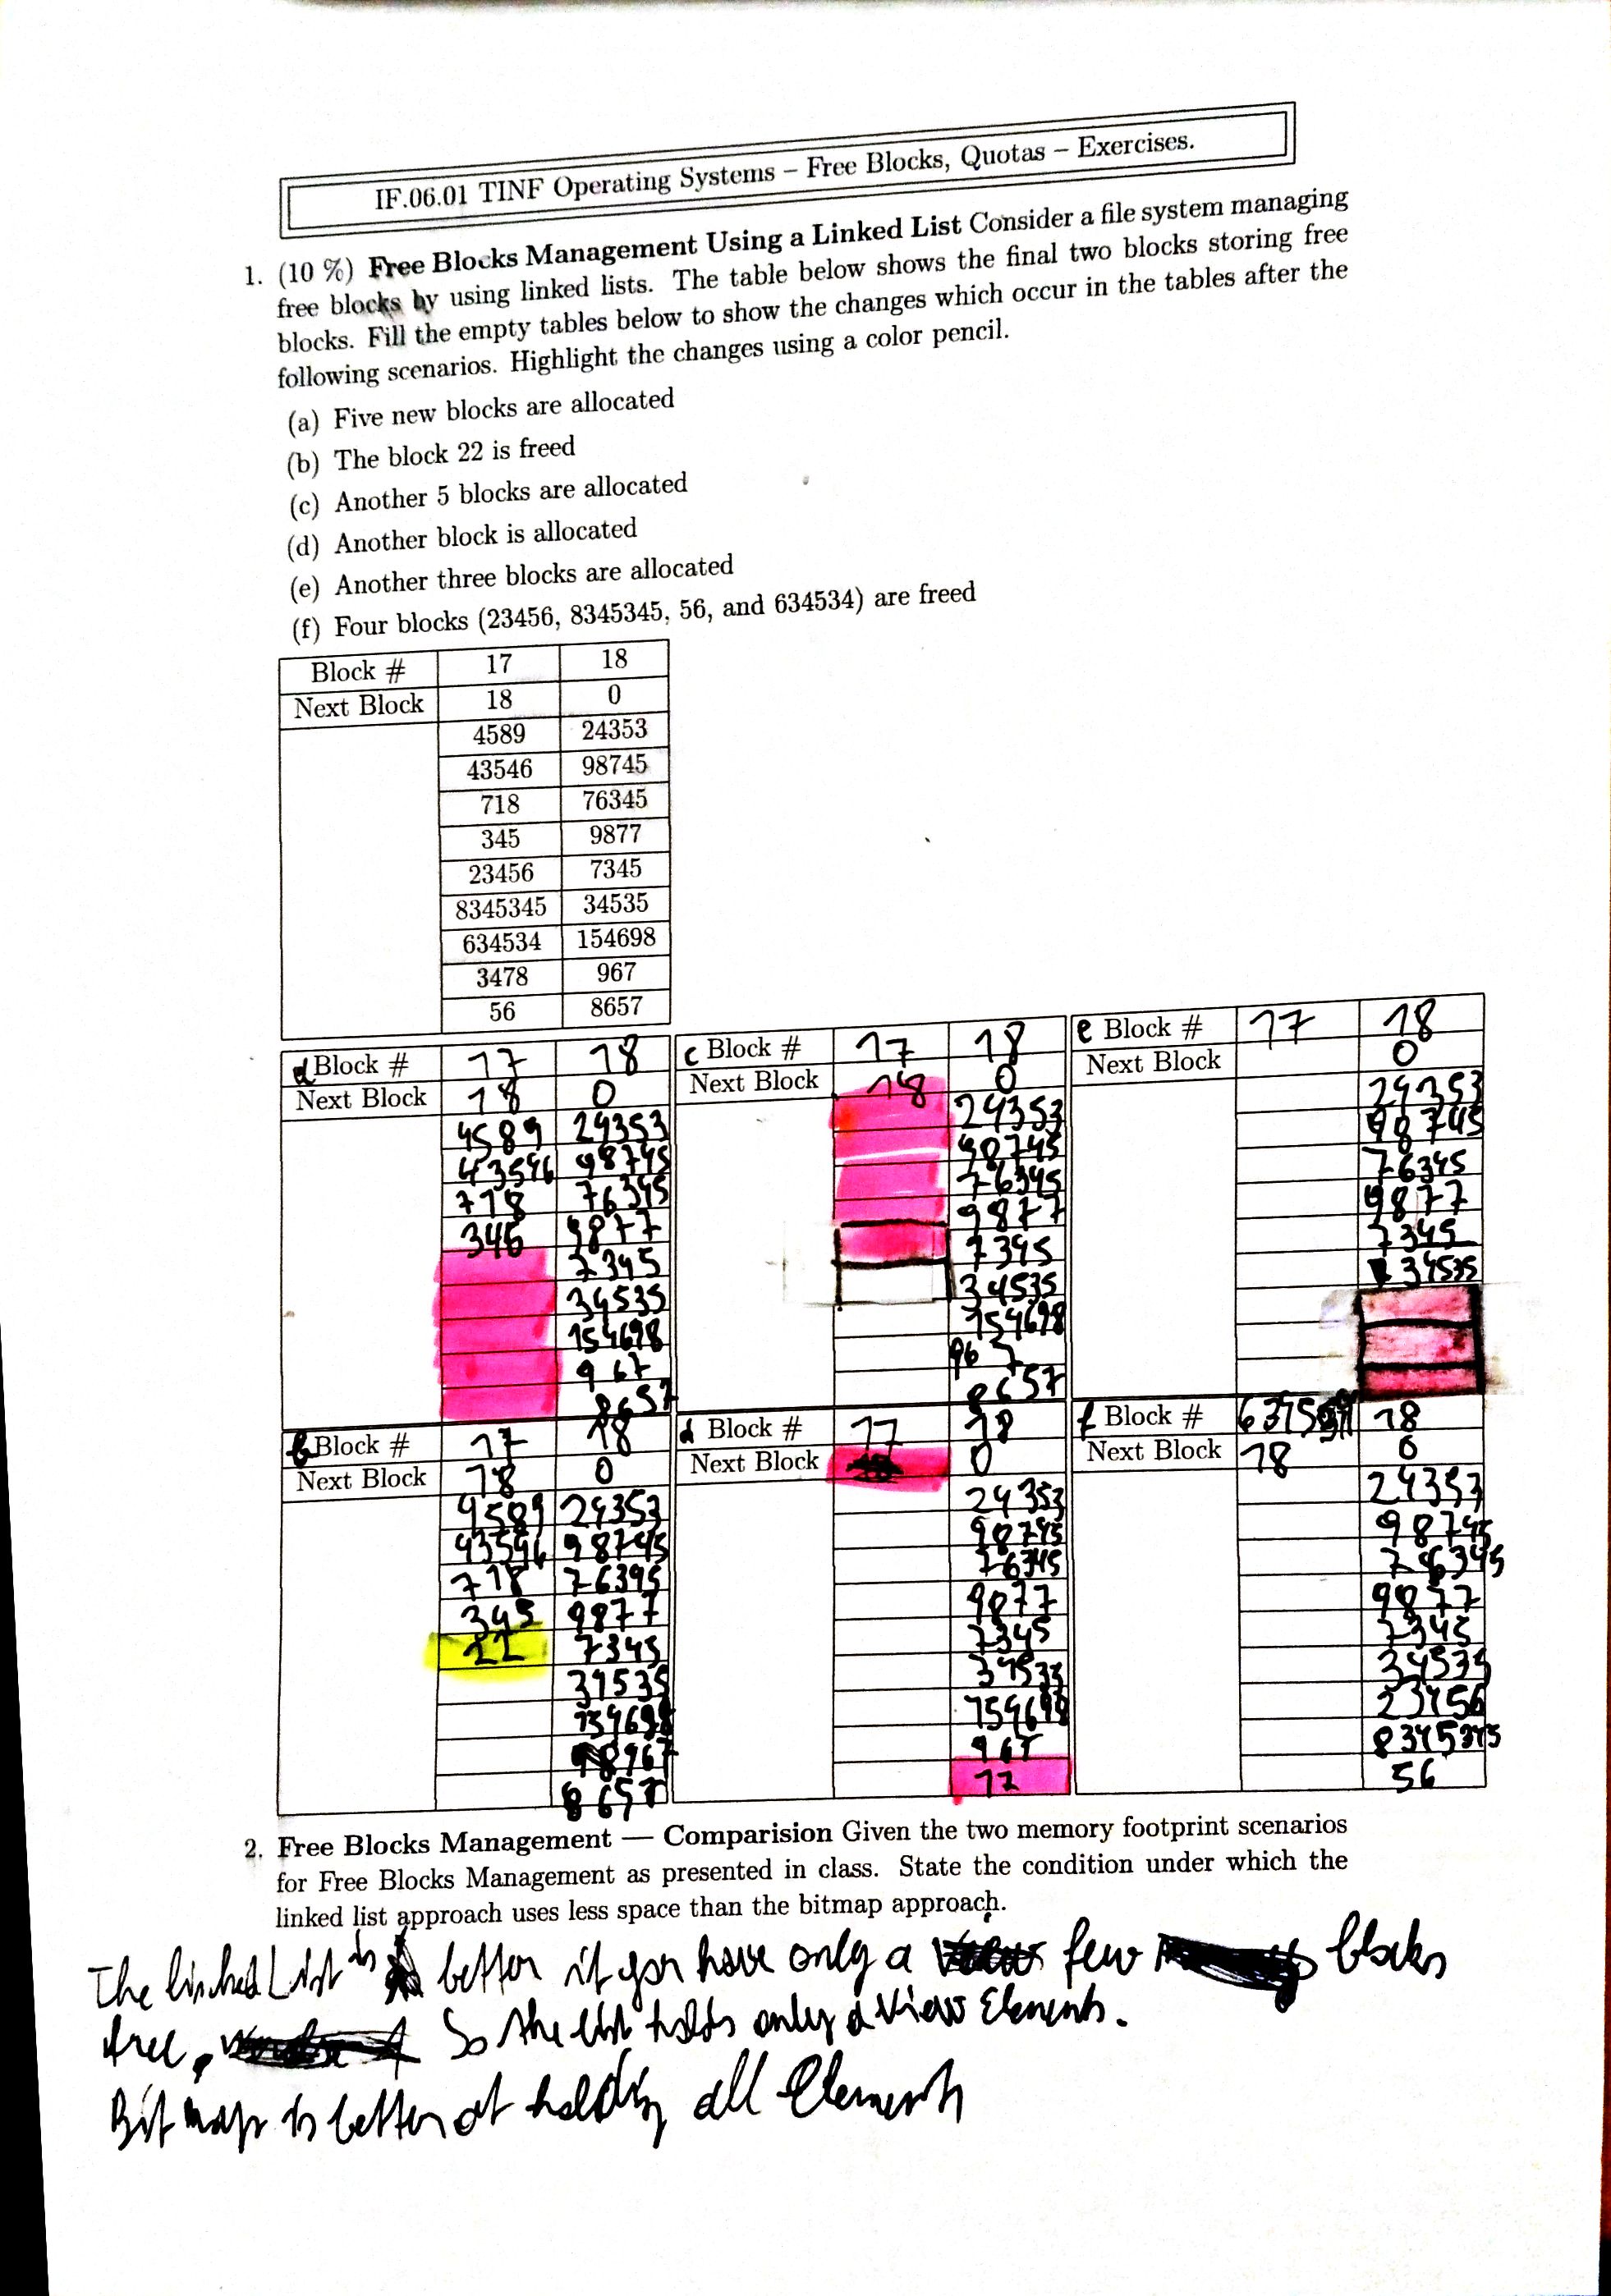 IF.06.01 TINF Operating Systems – Free Blocks, Quotas – Exercises.
1. (10 %) Free Blocks Management Using a Linked List Consider a file system managing
free blocks by using linked lists. The table below shows the final two blocks storing free
blocks. Fill the empty tables below to show the changes which occur in the tables after the
following scenarios. Highlight the changes using a color pencil.
(a) Five new blocks are allocated
(b) The block 22 is freed
(c) Another 5 blocks are allocated
(d) Another block is allocated
(e) Another three blocks are allocated
(f) Four blocks (23456, 8345345, 56, and 634534) are freed
Block # 17 18
Next Block 18 0
4589 24353
43546 98745
718 76345
345 9877
23456 7345
8345345 34535
634534 154698
3478 967
56 8657
Block # 17 18
Next Block 18 0
4589 24353
43546 98745
718 76345
345 9877
7345
34535
154698
967
8657
c Block # 17 18
Next Block 18 0
24353
98745
76345
9877
7345
34535
154698
967
8657
e Block # 17 18
Next Block 0
24353
98745
76345
9877
7345
34535
b Block # 17 18
Next Block 18 0
4589 24353
43546 98745
718 76345
345 9877
22 7345
34535
154698
967
8657
d Block # 17 18
Next Block 0
24353
98745
76345
9877
7345
34535
154698
967
17
f Block # 18
Next Block 18 0
24353
98745
76345
9877
7345
34535
23456
8345345
56
2. Free Blocks Management — Comparision Given the two memory footprint scenarios
for Free Blocks Management as presented in class. State the condition under which the
linked list approach uses less space than the bitmap approach.
The linked List is better if you have only a few blocks
free. So the list holds only a view Elements.
Bit map is better at holding all Elements